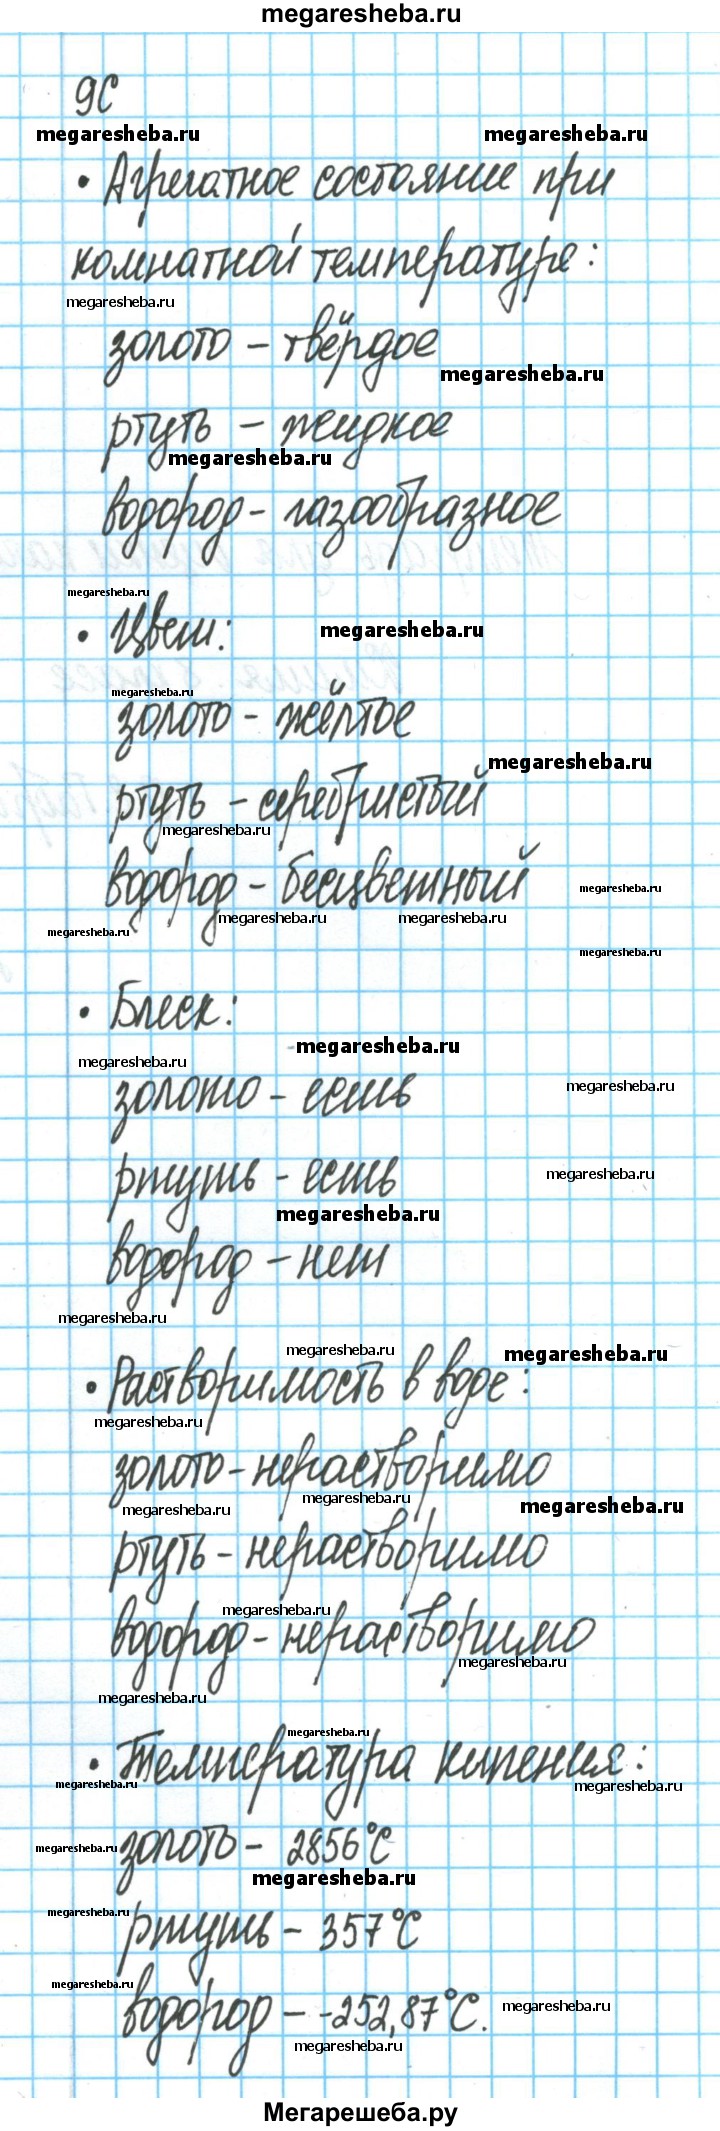 megaresheba.ru
9С
megaresheba.ru megaresheba.ru
• Агрегатное состояние при
комнатной температуре:
megaresheba.ru
золото – твёрдое
megaresheba.ru
ртуть – жидкое
megaresheba.ru
водород – газообразное
megaresheba.ru
• Цвет:
megaresheba.ru
megaresheba.ru
золото – жёлтое
megaresheba.ru
ртуть – серебристый
megaresheba.ru
водород – бесцветный
megaresheba.ru
megaresheba.ru megaresheba.ru
megaresheba.ru
megaresheba.ru
• Блеск:
megaresheba.ru
megaresheba.ru
золото – есть
megaresheba.ru
ртуть – есть
megaresheba.ru
megaresheba.ru
водород – нет
megaresheba.ru
megaresheba.ru
megaresheba.ru
• Растворимость в воде:
megaresheba.ru
золото – нерастворимо
megaresheba.ru
megaresheba.ru
megaresheba.ru
ртуть – нерастворимо
megaresheba.ru
водород – нерастворимо
megaresheba.ru
megaresheba.ru
megaresheba.ru
• Температура кипения:
megaresheba.ru
megaresheba.ru
megaresheba.ru
золоть – 2856°С
megaresheba.ru
megaresheba.ru
ртуть – 357°С
megaresheba.ru
водород – -252,87°С.
megaresheba.ru
megaresheba.ru
Мегарешеба.ру